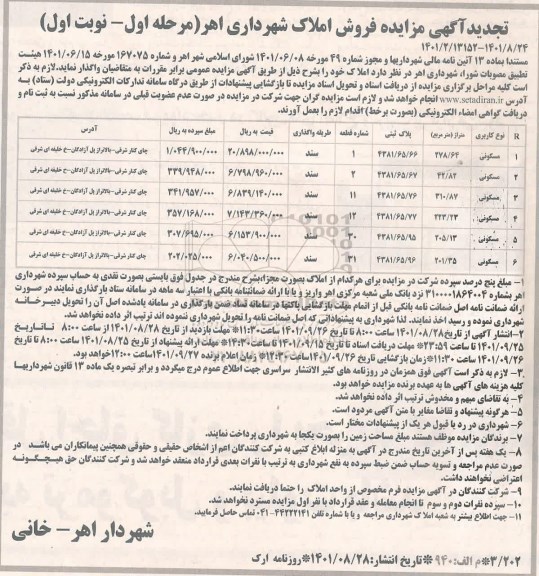 تجدیدآگهی مزایده فروش املاک شهرداری اهر(مرحله اول- نوبت اول)
۱۴۰۱/۲/۱۳۱۵۲-۱۴۰۱/۸/۲۴
مستندا بماده ۱۳ آئین نامه مالی شهرداریها و مجوز شماره ۴۹ مورخه ۱۴۰۱/۰۶/۰۸ شورای اسلامی شهر اهر و شماره ۱۶۷۰۷۵ مورخه ۱۴۰۱/۰۶/۱۵ هیئت
تطبیق مصوبات شورا، شهرداری اهر در نظر دارد املاک خود را بشرح ذیل از طریق آگهی مزایده عمومی برابر مقررات به متقاضیان واگذار نماید.لازم به ذکر
است کلیه مراحل برگزاری مزایده از دریافت اسناد و تحویل اسناد مزایده تا بازگشایی پیشنهادات از طریق درگاه سامانه تدارکات الکترونیکی دولت (ستاد) به
آدرس www.setadiran.ir انجام خواهد شد و لازم است مزایده گران جهت شرکت در مزایده در صورت عدم عضویت قبلی در سامانه مذکور نسبت به ثبت نام و
دریافت گواهی امضاء الکترونیکی (بصورت برخط) اقدام لازم را بعمل آورند.
R نوع کاربری متراژ (متر مربع) پلاک ثبتی شماره قطعه طریقه واگذاری قیمت به ریال مبلغ سپرده به ریال آدرس
۱ مسکونی ۲۷۸/۶۴ ۴۳۸۱/۶۵/۶۶ ۱ سند ۲۰/۸۹۸/۰۰۰/۰۰۰ ۱/۰۴۴/۹۰۰/۰۰۰ چای کنار شرقی-بالاتراز پل آزادگان-خ خلیفه ای شرقی
۲ مسکونی ۴۲/۸۲ ۴۳۸۱/۶۵/۶۷ ۲ سند ۶/۷۹۸/۹۶۰/۰۰۰ ۳۳۹/۹۴۸/۰۰۰ چای کنار شرقی-بالاتراز پل آزادگان-خ خلیفه ای شرقی
۳ مسکونی ۳۱۰/۸۷ ۴۳۸۱/۶۵/۷۶ ۱۱ سند ۶/۸۳۹/۱۴۰/۰۰۰ ۳۴۱/۹۵۷/۰۰۰ چای کنار شرقی-بالاتراز پل آزادگان-خ خلیفه ای شرقی
۴ مسکونی ۲۲۳/۲۳ ۴۳۸۱/۶۵/۷۷ ۱۲ سند ۷/۱۴۳/۳۶۰/۰۰۰ ۳۵۷/۱۶۸/۰۰۰ چای کنار شرقی-بالاتراز پل آزادگان-خ خلیفه ای شرقی
۵ مسکونی ۲۰۵/۱۳ ۴۳۸۱/۶۵/۹۵ ۳۰ سند ۶/۱۵۳/۹۰۰/۰۰۰ ۳۰۷/۶۹۵/۰۰۰ چای کنار شرقی-بالاتراز پل آزادگان-خ خلیفه ای شرقی
۶ مسکونی ۲۰۱/۳۵ ۴۳۸۱/۶۵/۹۶ ۳۱ سند ۶/۰۴۰/۵۰۰/۰۰۰ ۲۰۲/۰۲۵/۰۰۰ چای کنار شرقی-بالاتراز پل آزادگان-خ خلیفه ای شرقی
۱- مبلغ پنج درصد سپرده شرکت در مزایده برای هرکدام از املاک بصورت مجزا،بشرح مندرج در جدول فوق بایستی بصورت نقدی به حساب سپرده شهرداری
اهر بشماره ۳۱۰۰۰۰۱۸۶۴۰۰۴ نزد بانک ملی شعبه مرکزی اهر واریز و یا با ارائه ضمانتنامه بانکی با اعتبار سه ماهه در سامانه ستاد بارگذاری نمایند در صورت
ارائه ضمانت نامه اصل ضمانت نامه بانکی قبل از اتمام مهلت بازگشایی پاکتها در سامانه ستاد ضمن بارگذاری در سامانه یادشده اصل آن را تحویل دبیرخانه
شهرداری نموده و رسید اخذ نمایند. لذا شهرداری به پیشنهاداتی که اصل ضمانت نامه را تحویل شهرداری ننموده اند ترتیب اثر داده نخواهد شد.
۲- انتشار آگهی از تاریخ۱۴۰۱/۰۸/۲۸ ساعت ۸:۰۰ تا تاریخ ۱۴۰۱/۰۹/۲۶ ساعت ۱۱:۳۰* مهلت بازدید از تاریخ ۱۴۰۱/۰۸/۲۸ از ساعت ۸:۰۰ تا تاریخ
۱۴۰۱/۰۹/۲۵ تا ساعت ۲۳:۵۹* مهلت دریافت اسناد تا تاریخ ۱۴۰۱/۰۹/۱۵ تا ساعت ۱۴:۳۰* مهلت ارائه پیشنهاد از تاریخ ۱۴۰۱/۰۸/۲۵ ساعت ۸:۰۰ تا تاریخ
۱۴۰۱/۰۹/۲۶ ساعت ۱۱:۳۰*زمان بازگشایی تاریخ ۱۴۰۱/۰۹/۲۶ ساعت ۱۲:۳۰* زمان اعلام برنده ۱۴۰۱/۰۹/۲۷ ساعت ۱۲:۰۰خواهد بود.
۳- لازم به ذکر است آگهی فوق همزمان در روزنامه های کثیر الانتشار سراسری جهت اطلاع عموم درج میگردد و برابر تبصره یک ماده ۱۳ قانون شهرداریها
کلیه هزینه های آگهی ها به عهده برنده مزایده خواهد بود.
۴- به تقاضای مبهم و مخدوش ترتیب اثر داده نخواهد شد.
۵- هرگونه پیشنهاد و تقاضا مغایر با متن آگهی مردود است.
۶- شهرداری در رد یا قبول هر یک از پیشنهادات مختار است.
۷- برندگان مزایده موظف هستند مبلغ مساحت زمین را بصورت یکجا به شهرداری پرداخت نمایند.
۸- یک هفته پس از آخرین تاریخ مندرج در آگهی به منزله ابلاغ کتبی به شرکت کنندگان اعم از اشخاص حقیقی و حقوقی همچنین پیمانکاران می باشد در
صورت عدم مراجعه و تسویه حساب ضمن ضبط سپرده به نفع شهرداری به ترتیب با نفرات بعدی قرارداد منعقد خواهد شد و شرکت کنندگان حق هیچگونه
اعتراضی نخواهند داشت.
۹- شرکت کنندگان در آگهی مزایده فرم مخصوص از واحد املاک را حتما دریافت نمایند.
۱۰- سپرده نفرات دوم و سوم تا انجام معامله و عقد قرارداد با نفر اول مزایده مسترد نخواهد شد.
۱۱- جهت اطلاع بیشتر به شعبه املاک شهرداری مراجعه و یا با شماره تلفن ۴۴۲۲۲۱۴۱-۰۴۱ تماس حاصل فرمایید.
شهردار اهر- خانی
۳/۲۰۲*م الف:۹۴۰*تاریخ انتشار:۱۴۰۱/۰۸/۲۸*روزنامه ارک